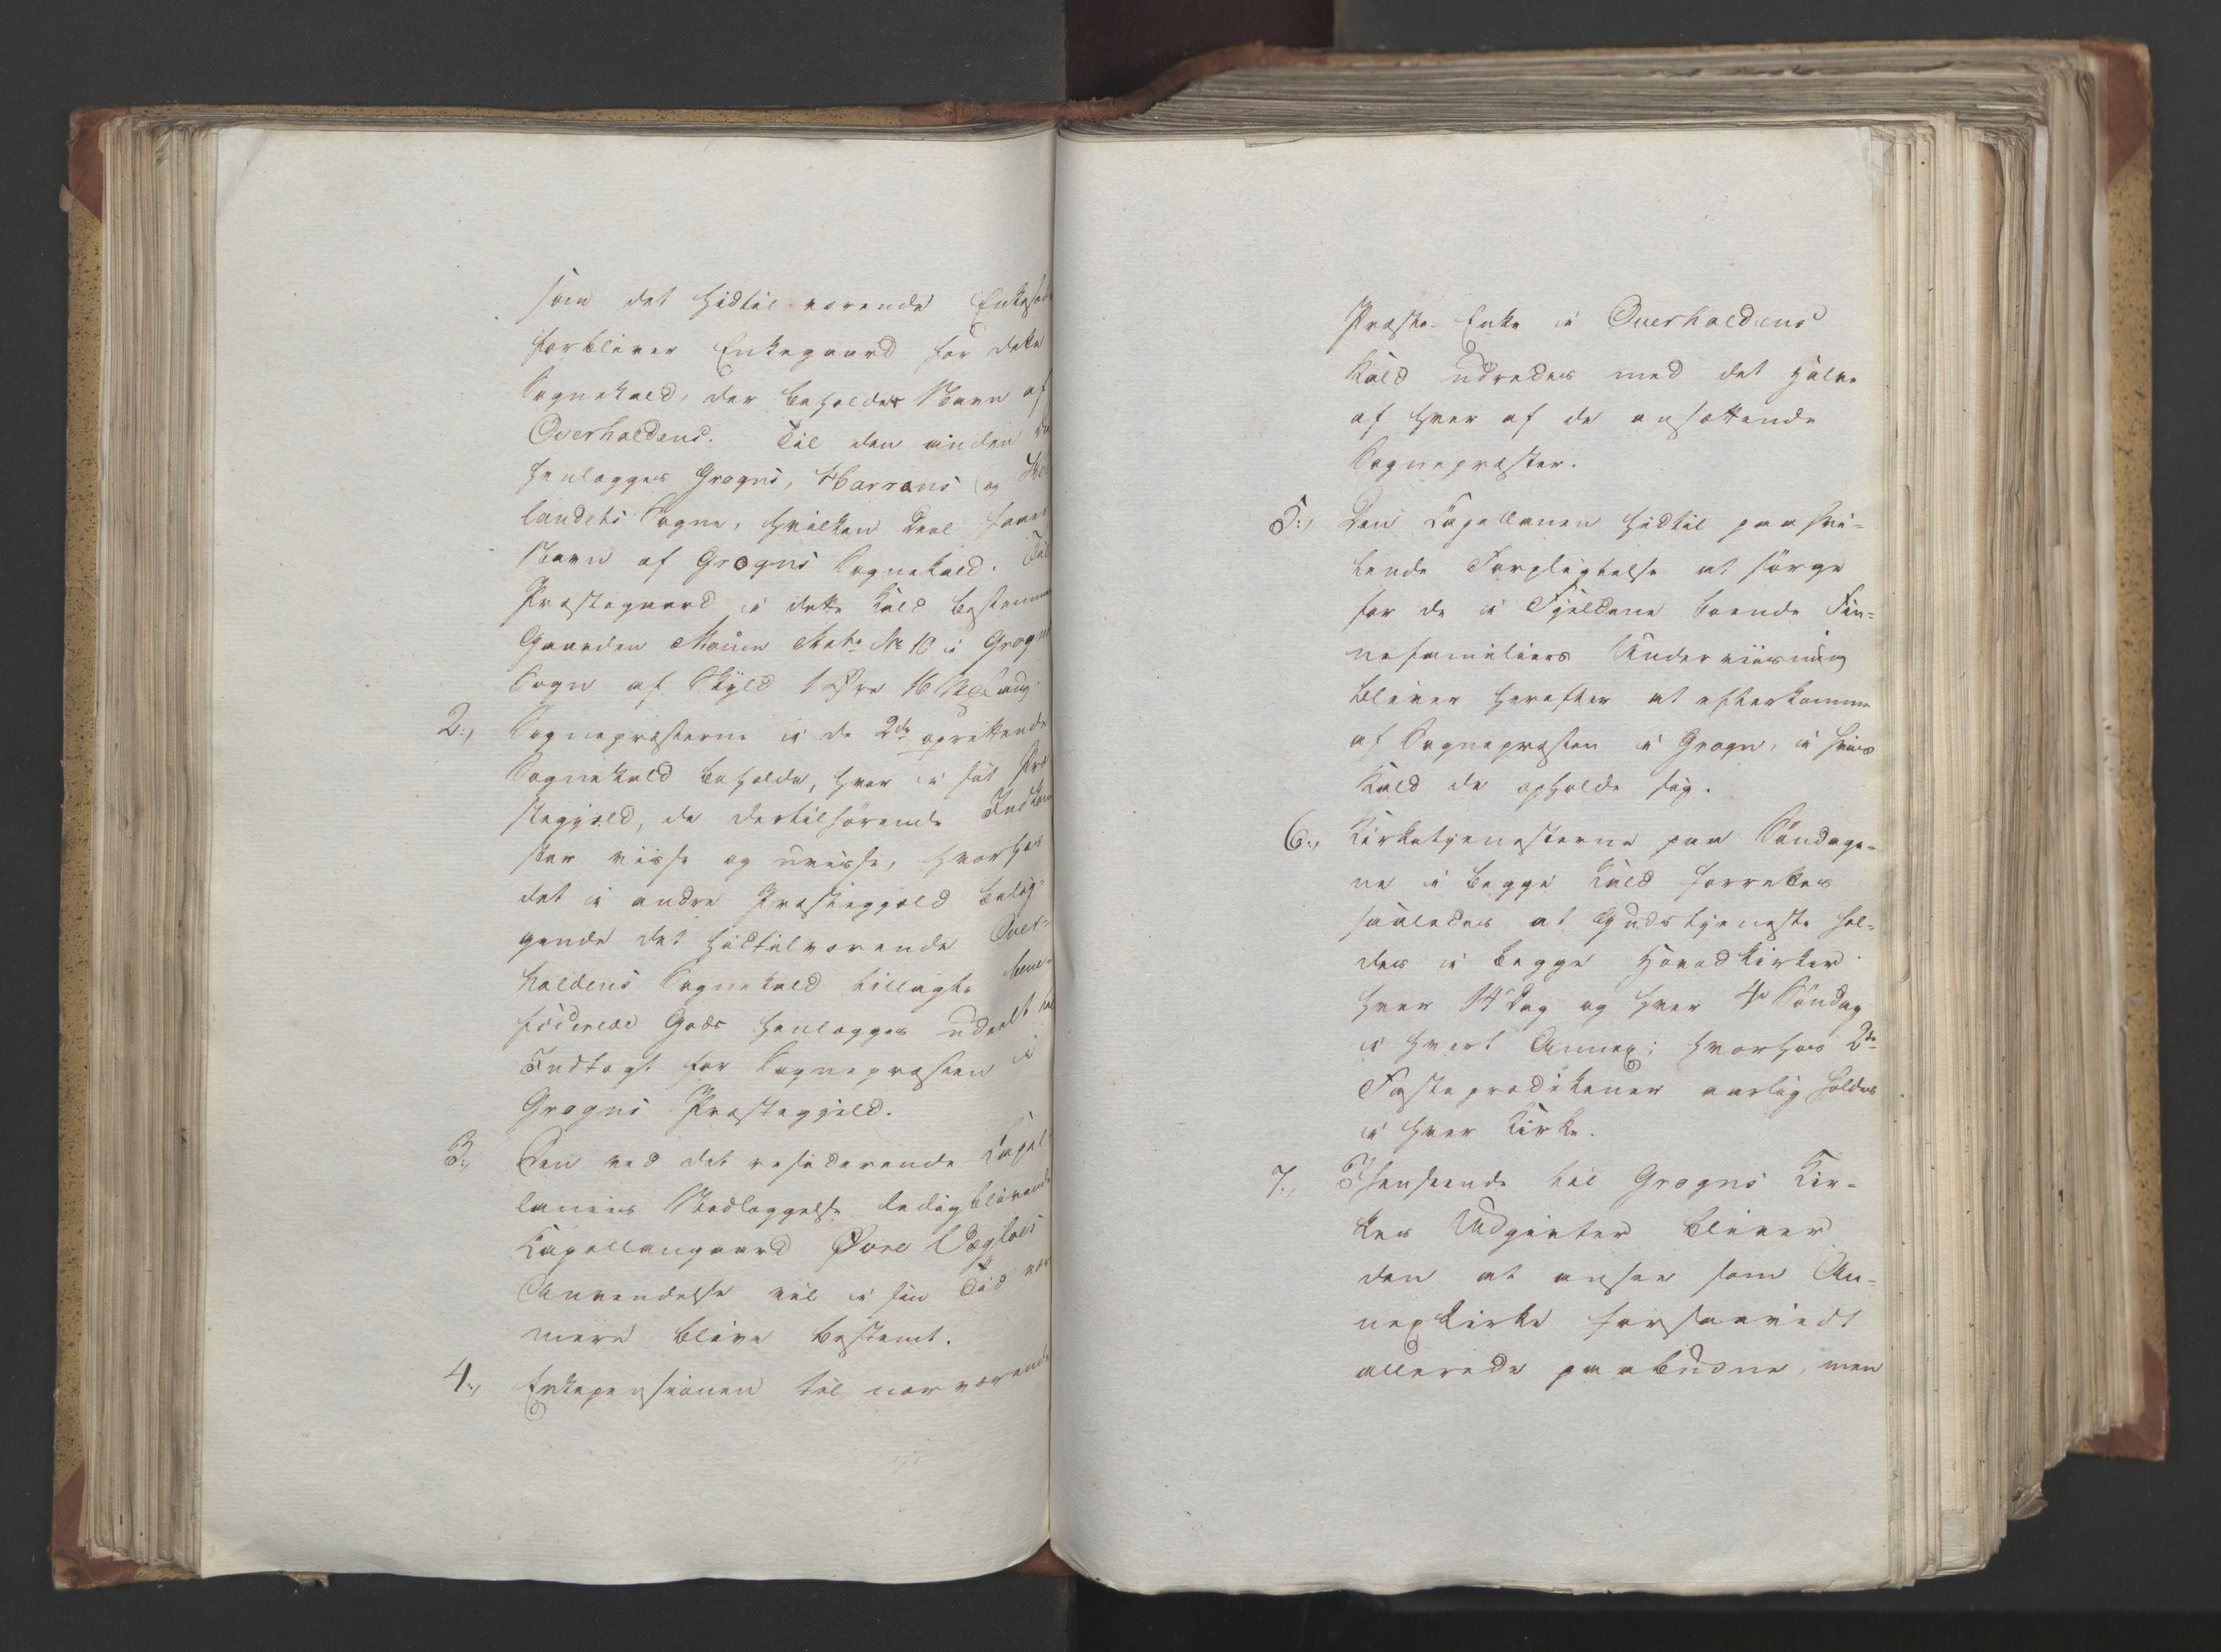 som det hidtil værende Enkesæde
forbliver Enkegaard for dette
Sognekald, der beholder Navn af
Overhaldens. Til den anden
henlægges Grogns, Harrans og
landets Sogne, hvilken Deel faaer
Navn af Grogns Sognekald. Til
Præstegaard i dette Kald bestemmes
Gaarden Moum Matr. No 10 i Grogns
Sogn af Skyld 1 Øre 16 Mrklaug.
2., Sognepræsterne i de 2de oprettende
Sognekald beholde, hver i sit Præ
stegjæld, de dertilhørende Indkom
ster visse og uvisse, hvorhos
det i andre Præstegjæld belig-
gende det hidtilværende Over-
haldens Sognekald tillagte bene-
ficerede Gods henlægges udeelt til
Indtægt for Sognepræsten i
Grogns Præstegjæld.
3., Den ved det residerende Capel-
lanies Nedlæggelse ledigblivende
Capellangaard Øvre
Anvendelse vil i sin Tid nær
mere blive bestemt.
4., Enkepensionen til nærværende
Præste-Enke i Overhaldens
Kald udredes med det halve
af hver af de ansættende
Sognepræster.
5., Den Capellanen hidtil paahvi-
lende Forpligtelse at sörge
for de i Fjeldene boende Fin-
nefamiliers Underviisning
bliver herefter at efterkomme
af Sognepræsten i Grogn, i hvis
Kald de opholde sig.
6., Kirketjenesterne paa Söndage-
ne i begge Kald forrettes
saaledes at Gudstjeneste hol-
des i begge Hovedkirker
hver 14 Dag og hver 4de Söndag
i hvert Annex; hvorhos 2de
Fasteprædikener aarlig holdes
i hver Kirke.
7., Henseende til Grogns Kir-
kes Udgivter bliver
den at ansee som An-
nexkirke forsaavidt
allerede paabudne, men